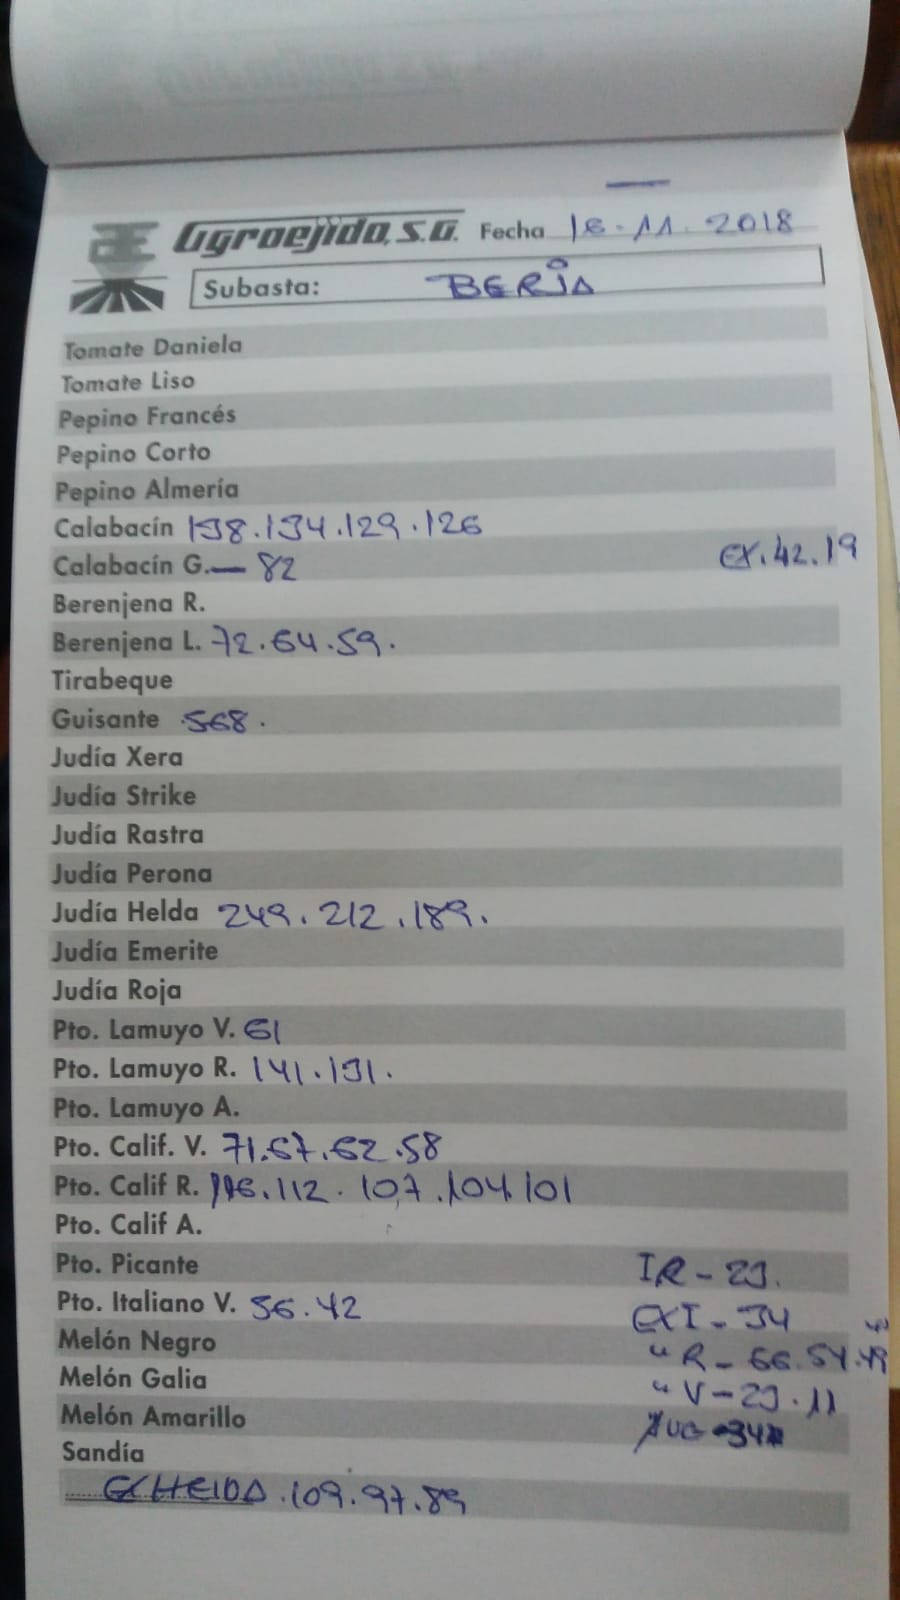 Agroejido, S.A. Fecha 16-11.2018
Subasta: BERJA
Tomate Daniela
Tomate Liso
Pepino Francés
Pepino Corto
Pepino Almería
Calabacín 138.134.129.126
Calabacín G.— 82 EX.42.19
Berenjena R.
Berenjena L. 72.64.59.
Tirabeque
Guisante 568.
Judía Xera
Judía Strike
Judía Rastra
Judía Perona
Judía Helda 249.212.189.
Judía Emerite
Judía Roja
Pto. Lamuyo V. 61
Pto. Lamuyo R. 141.131.
Pto. Lamuyo A.
Pto. Calif. V. 71.67.62.58
Pto. Calif R. 116.112.107.104.101
Pto. Calif A.
Pto. Picante IR-23.
Pto. Italiano V. 56.42 EXI-34
Melón Negro " R-66.54.49
Melón Galia " V-23.11
Melón Amarillo
Sandía
EXHELDA.109.97.89